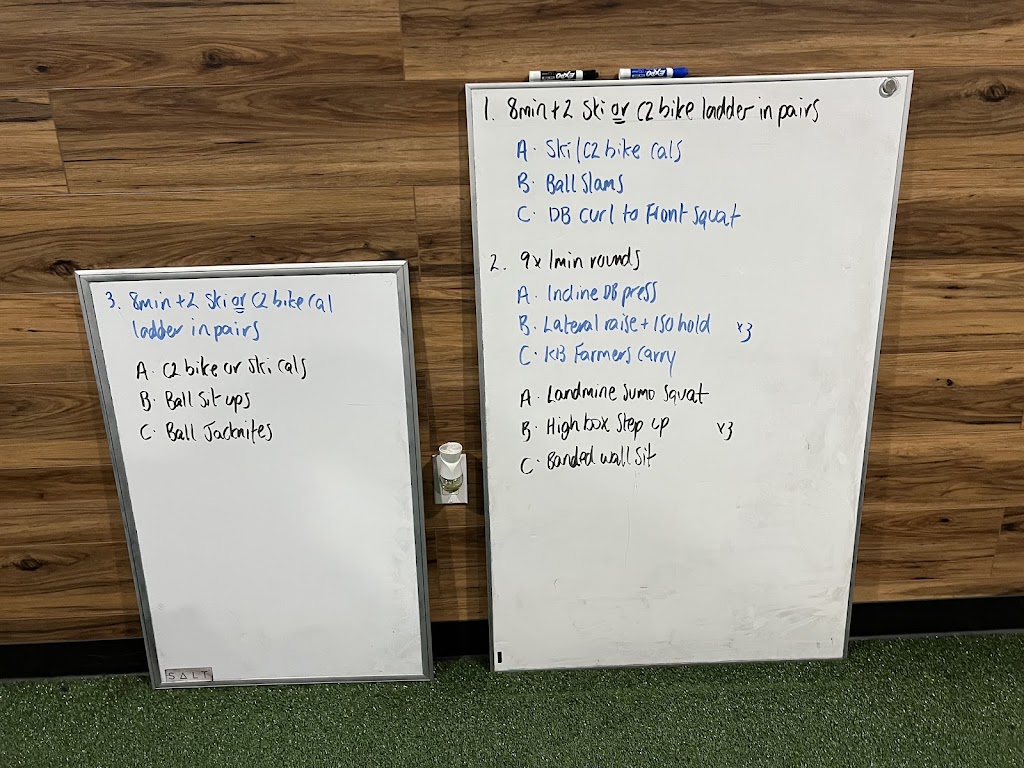 1. 8min +2 Ski or C2 bike ladder in pairs
A. Ski/C2 bike cals
B. Ball Slams
C. DB curl to Front Squat
2. 9x 1min rounds
A. Incline DB press
B. Lateral raise + ISO hold x3
C. KB Farmers Carry
A. Landmine Sumo Squat
B. High box Step up x3
C. Banded wall Sit
3. 8min +2 Ski or C2 bike cal
ladder in pairs
A. C2 bike or Ski cals
B. Ball Sit ups
C. Ball Jacknifes
SALT
EXPO
EXPO